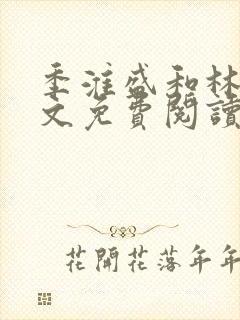 季淮盛和林
文免費閱讀
花開花落年年